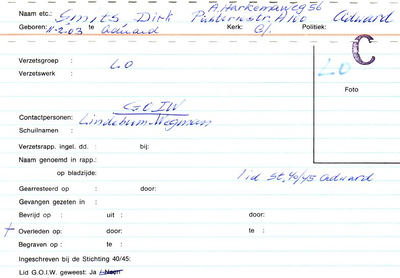 A. Harkemaweg 56
Naam etc.: Smits, Dirk Pasteriestr. A 100 Aduard
Geboren: 11-2-03 te Aduard Kerk: G/. Politiek:
C
Verzetsgroep : LO
Verzetswerk : LO
Foto
G.O.I.W
Contactpersonen: Lindeburn-Wegman
Schuilnamen :
Verzetsrapp. ingel. dd. : bij:
Naam genoemd in rapp.:
op bladzijde: lid St. 40/45 Aduard
Gearresteerd op : door:
Gevangen gezeten in :
Bevrijd op : uit : door:
+ Overleden op: door: te :
Begraven op : te :
Ingeschreven bij de Stichting 40/45:
Lid G.O.I.W. geweest: Ja / Neen